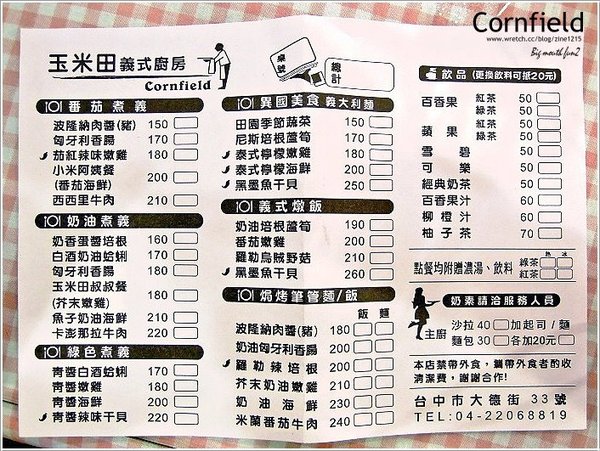 Cornfield
www.wretch.cc/blog/zine1215
Big mouth fun2
玉米田義式廚房
Cornfield
桌號
總計
番茄煮義
波隆納肉醬(豬) 150
匈牙利香腸 170
茄紅辣味嫩雞 180
小米阿姨餐
(番茄海鮮) 200
西西里牛肉 210
奶油煮義
奶香蛋醬培根 160
白酒奶油蛤蜊 170
匈牙利香腸 180
玉米田叔叔餐
(芥末嫩雞) 180
魚子奶油海鮮 210
卡彭那拉牛肉 220
綠色煮義
青醬白酒蛤蜊 170
青醬嫩雞 180
青醬海鮮 200
青醬辣味干貝 220
異國美食 義大利麵
田園季節蔬菜 150
尼斯培根蘆筍 170
泰式檸檬嫩雞 180
泰式檸檬海鮮 210
黑墨魚干貝 250
義式燉飯
奶油培根蘆筍 190
番茄嫩雞 200
羅勒烏賊野菇 210
黑墨魚干貝 260
焗烤筆管麵/飯
飯 麵
波隆納肉醬(豬) 180
奶油匈牙利香腸 200
羅勒辣培根 200
芥末奶油嫩雞 220
奶油海鮮 230
米蘭番茄牛肉 240
飲品 (更換飲料可抵20元)
百香果 紅茶 50
綠茶 50
蘋果 紅茶 50
綠茶 50
雪碧 50
可樂 50
經典奶茶 50
百香果汁 60
柳橙汁 60
柚子茶 70
熱 冰
點餐均附贈濃湯、飲料 綠茶
紅茶
奶素請洽服務人員
主廚 沙拉40 加起司/麵
麵包30 各加20元
本店禁帶外食,攜帶外食者酌收
清潔費,謝謝合作!
台中市大德街 33號
TEL:04-22068819